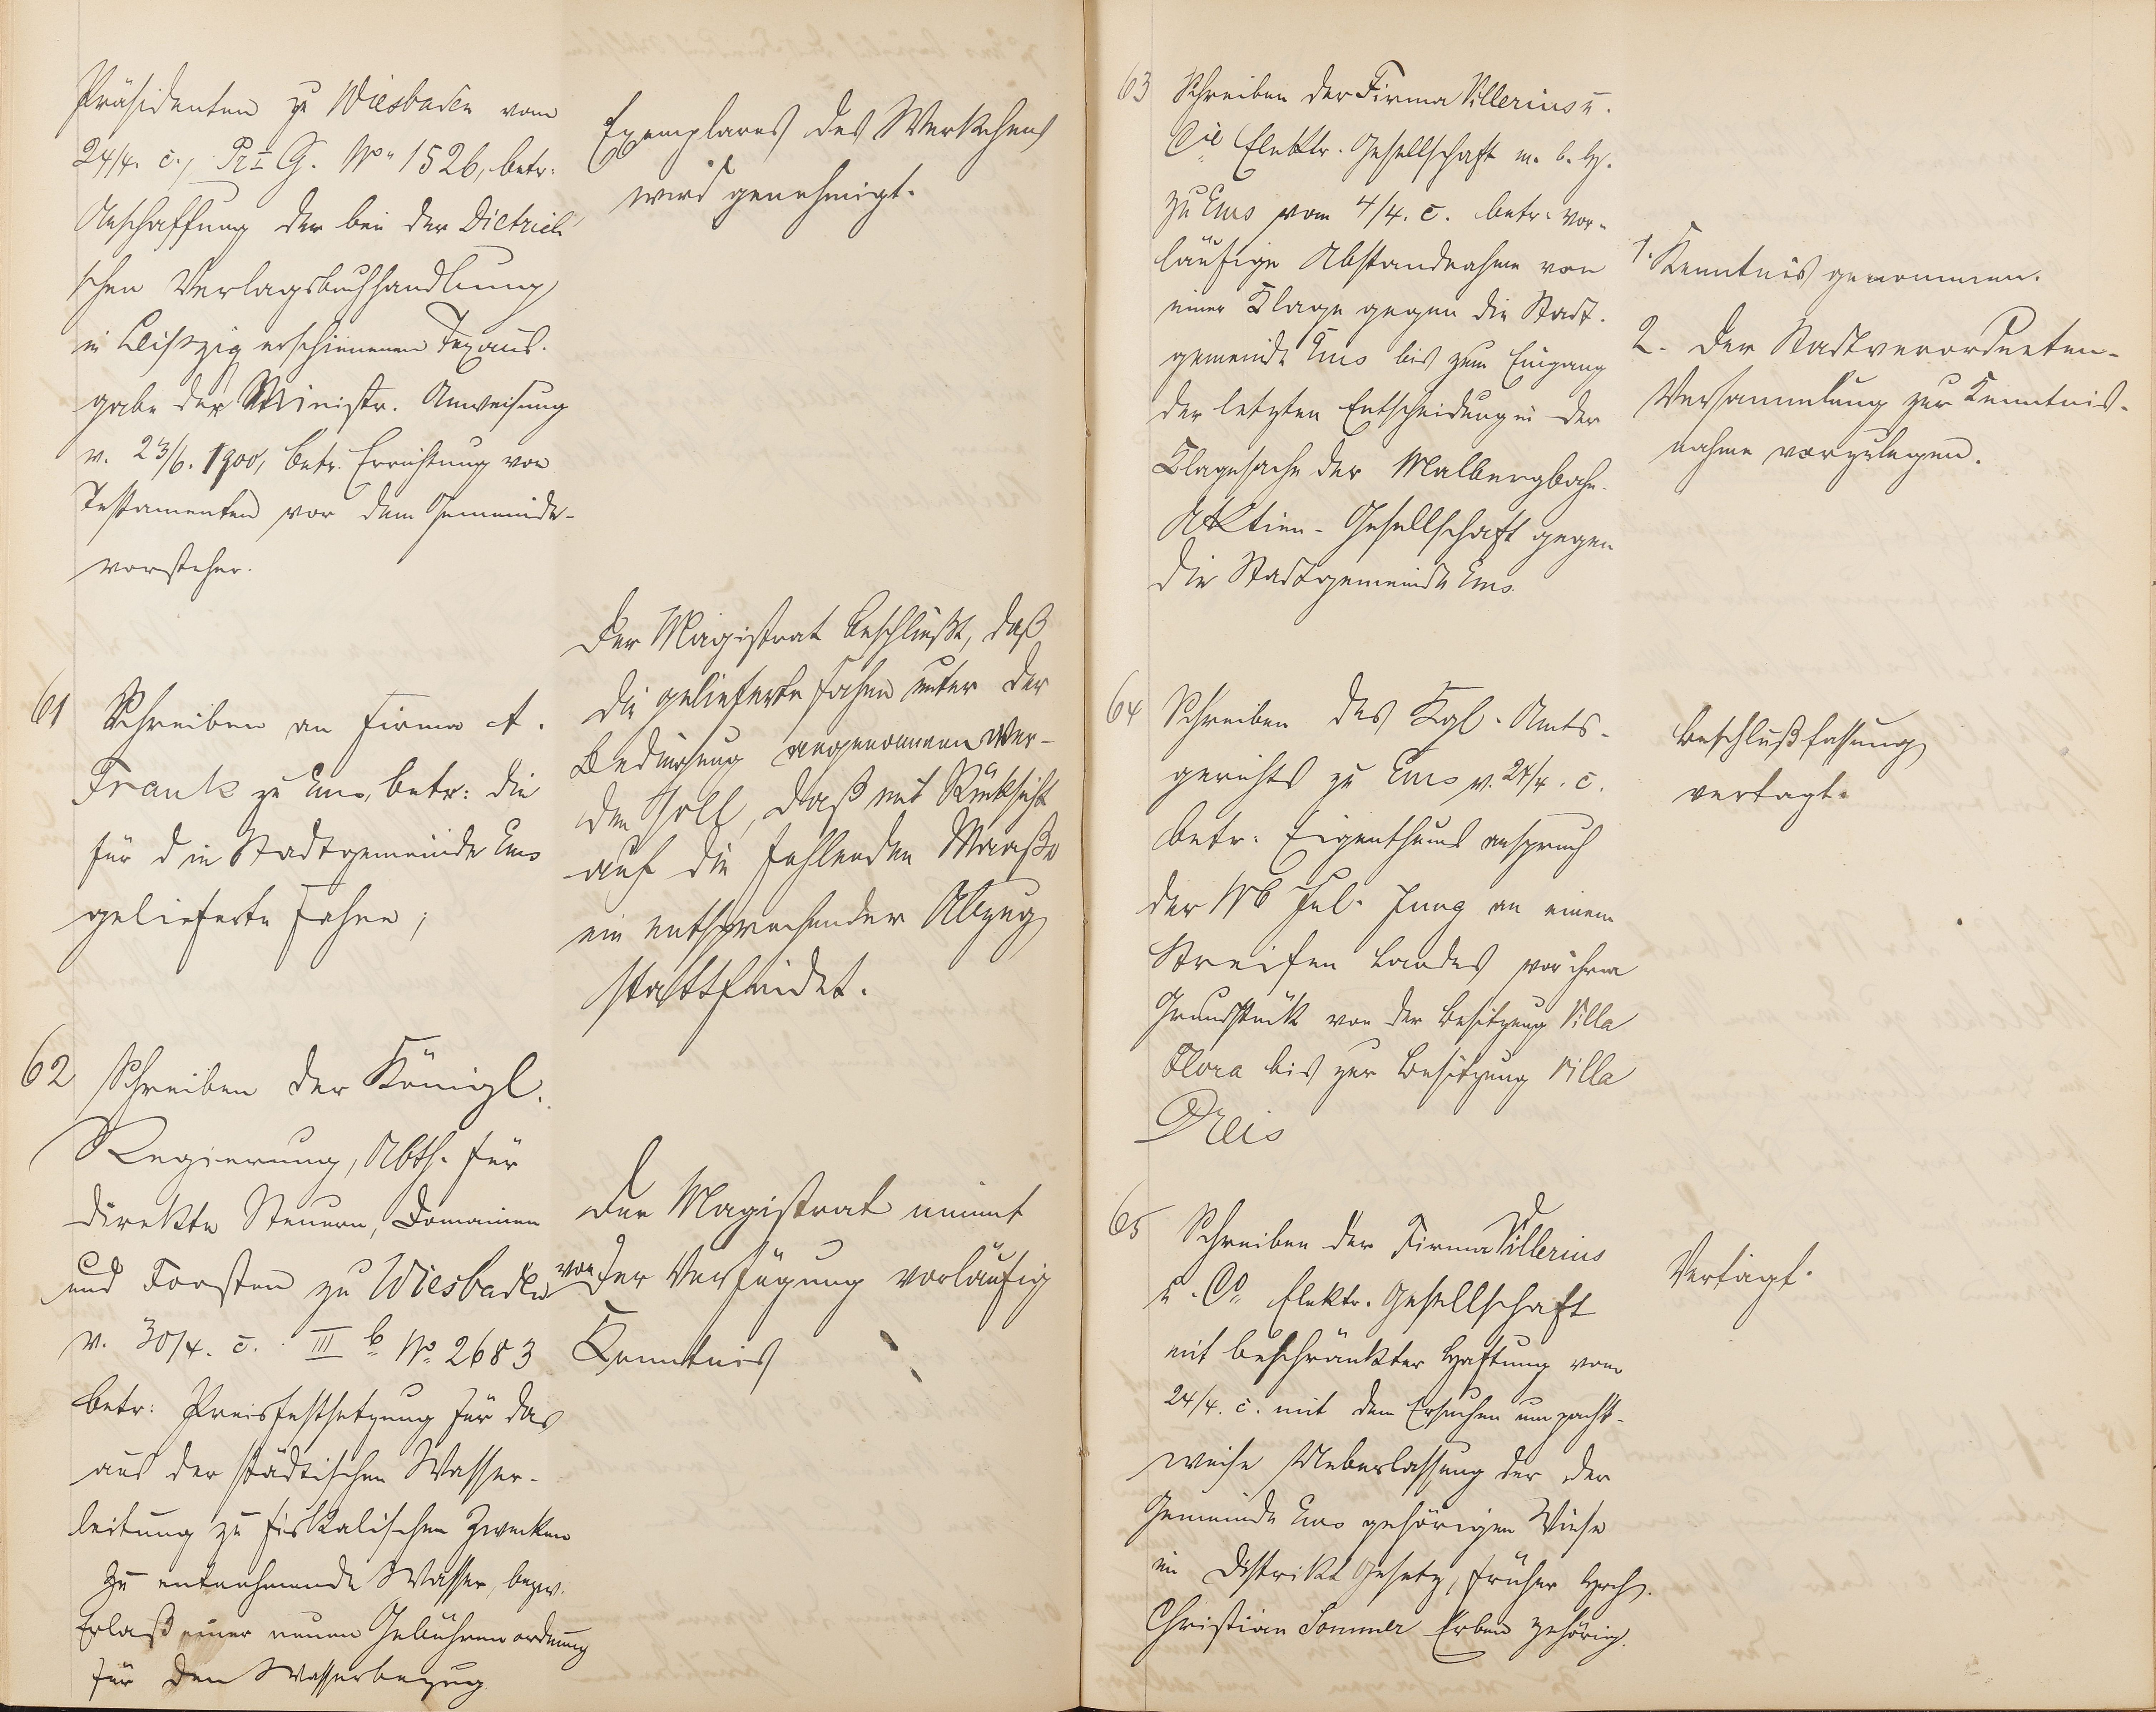 Präsidenten zu Wiesbaden vom
24/4. c., Pr I G. No 1526, betr.
Anschaffung der bei der Dietrich'
schen Verlagsbuchhandlung
in Leipzig erschienenen Textaus-
gabe der Ministr. Anweisung
v. 23/6. 1900, betr. Errichtung von
Testamenten vor dem Gemeinde-
vorsteher.
Exemplares des Werkchens
wird genehmigt.
61 Schreiben an Firma A.
Frank zu Ems, betr: die
für die Stadtgemeinde Ems
gelieferte Fahne;
Der Magistrat beschließt, daß
die gelieferte Fahne unter der
Bedingung angenommen wer-
den soll, daß mit Rücksicht
auf die fehlenden Maaße
ein entsprechender Abzug
stattfindet.
62 Schreiben der Königl.
Regierung, Abth. für
direkte Steuern, Domainen
und Forsten zu Wiesbaden
v. 30/4. c. III b No 2683
betr: Preisfestsetzung für das
aus der städtischen Wasser-
leitung zu fiskalischen Zwecken
zu entnehmende Wasser, bezw.
Erlaß einer neuen Gebührenordnung
für den Wasserbezug.
Der Magistrat nimmt
von der Verfügung vorläufig
Kenntnis
63 Schreiben der Firma Villerius u.
Cie Elektr. Gesellschaft m. b. H.
zu Ems vom 4/4. c. betr: vor-
läufige Abstandnahme von
einer Klage gegen die Stadt-
gemeinde Ems bis zum Eingang
der letzten Entscheidung in der
Klagesache der Malbergbahn-
Aktien-Gesellschaft gegen
die Stadtgemeinde Ems.
1. Kenntnis genommen.
2. Der Stadtverordneten-
Versammlung zur Kenntnis-
nahme vorzulegen.
64 Schreiben des Kgl. Amts-
gerichts zu Ems v. 24/4. c.
betr: Eigenthumsanspruch
der Wb Jul. Jung an einem
Streifen Landes vor ihrem
Grundstück von der Besitzung Villa
Flora bis zur Besitzung Villa
Reis
Beschlußfassung
vertagt.
65 Schreiben der Firma Villerius
u. Co Elektr. Gesellschaft
mit beschränkter Haftung vom
24/4. c. mit dem Ersuchen um pacht-
weise Ueberlassung der der
Gemeinde Ems gehörigen Wiese
im Distrikt Gesetz, früher
Christian Sommer Erben gehörig.
Vertagt.